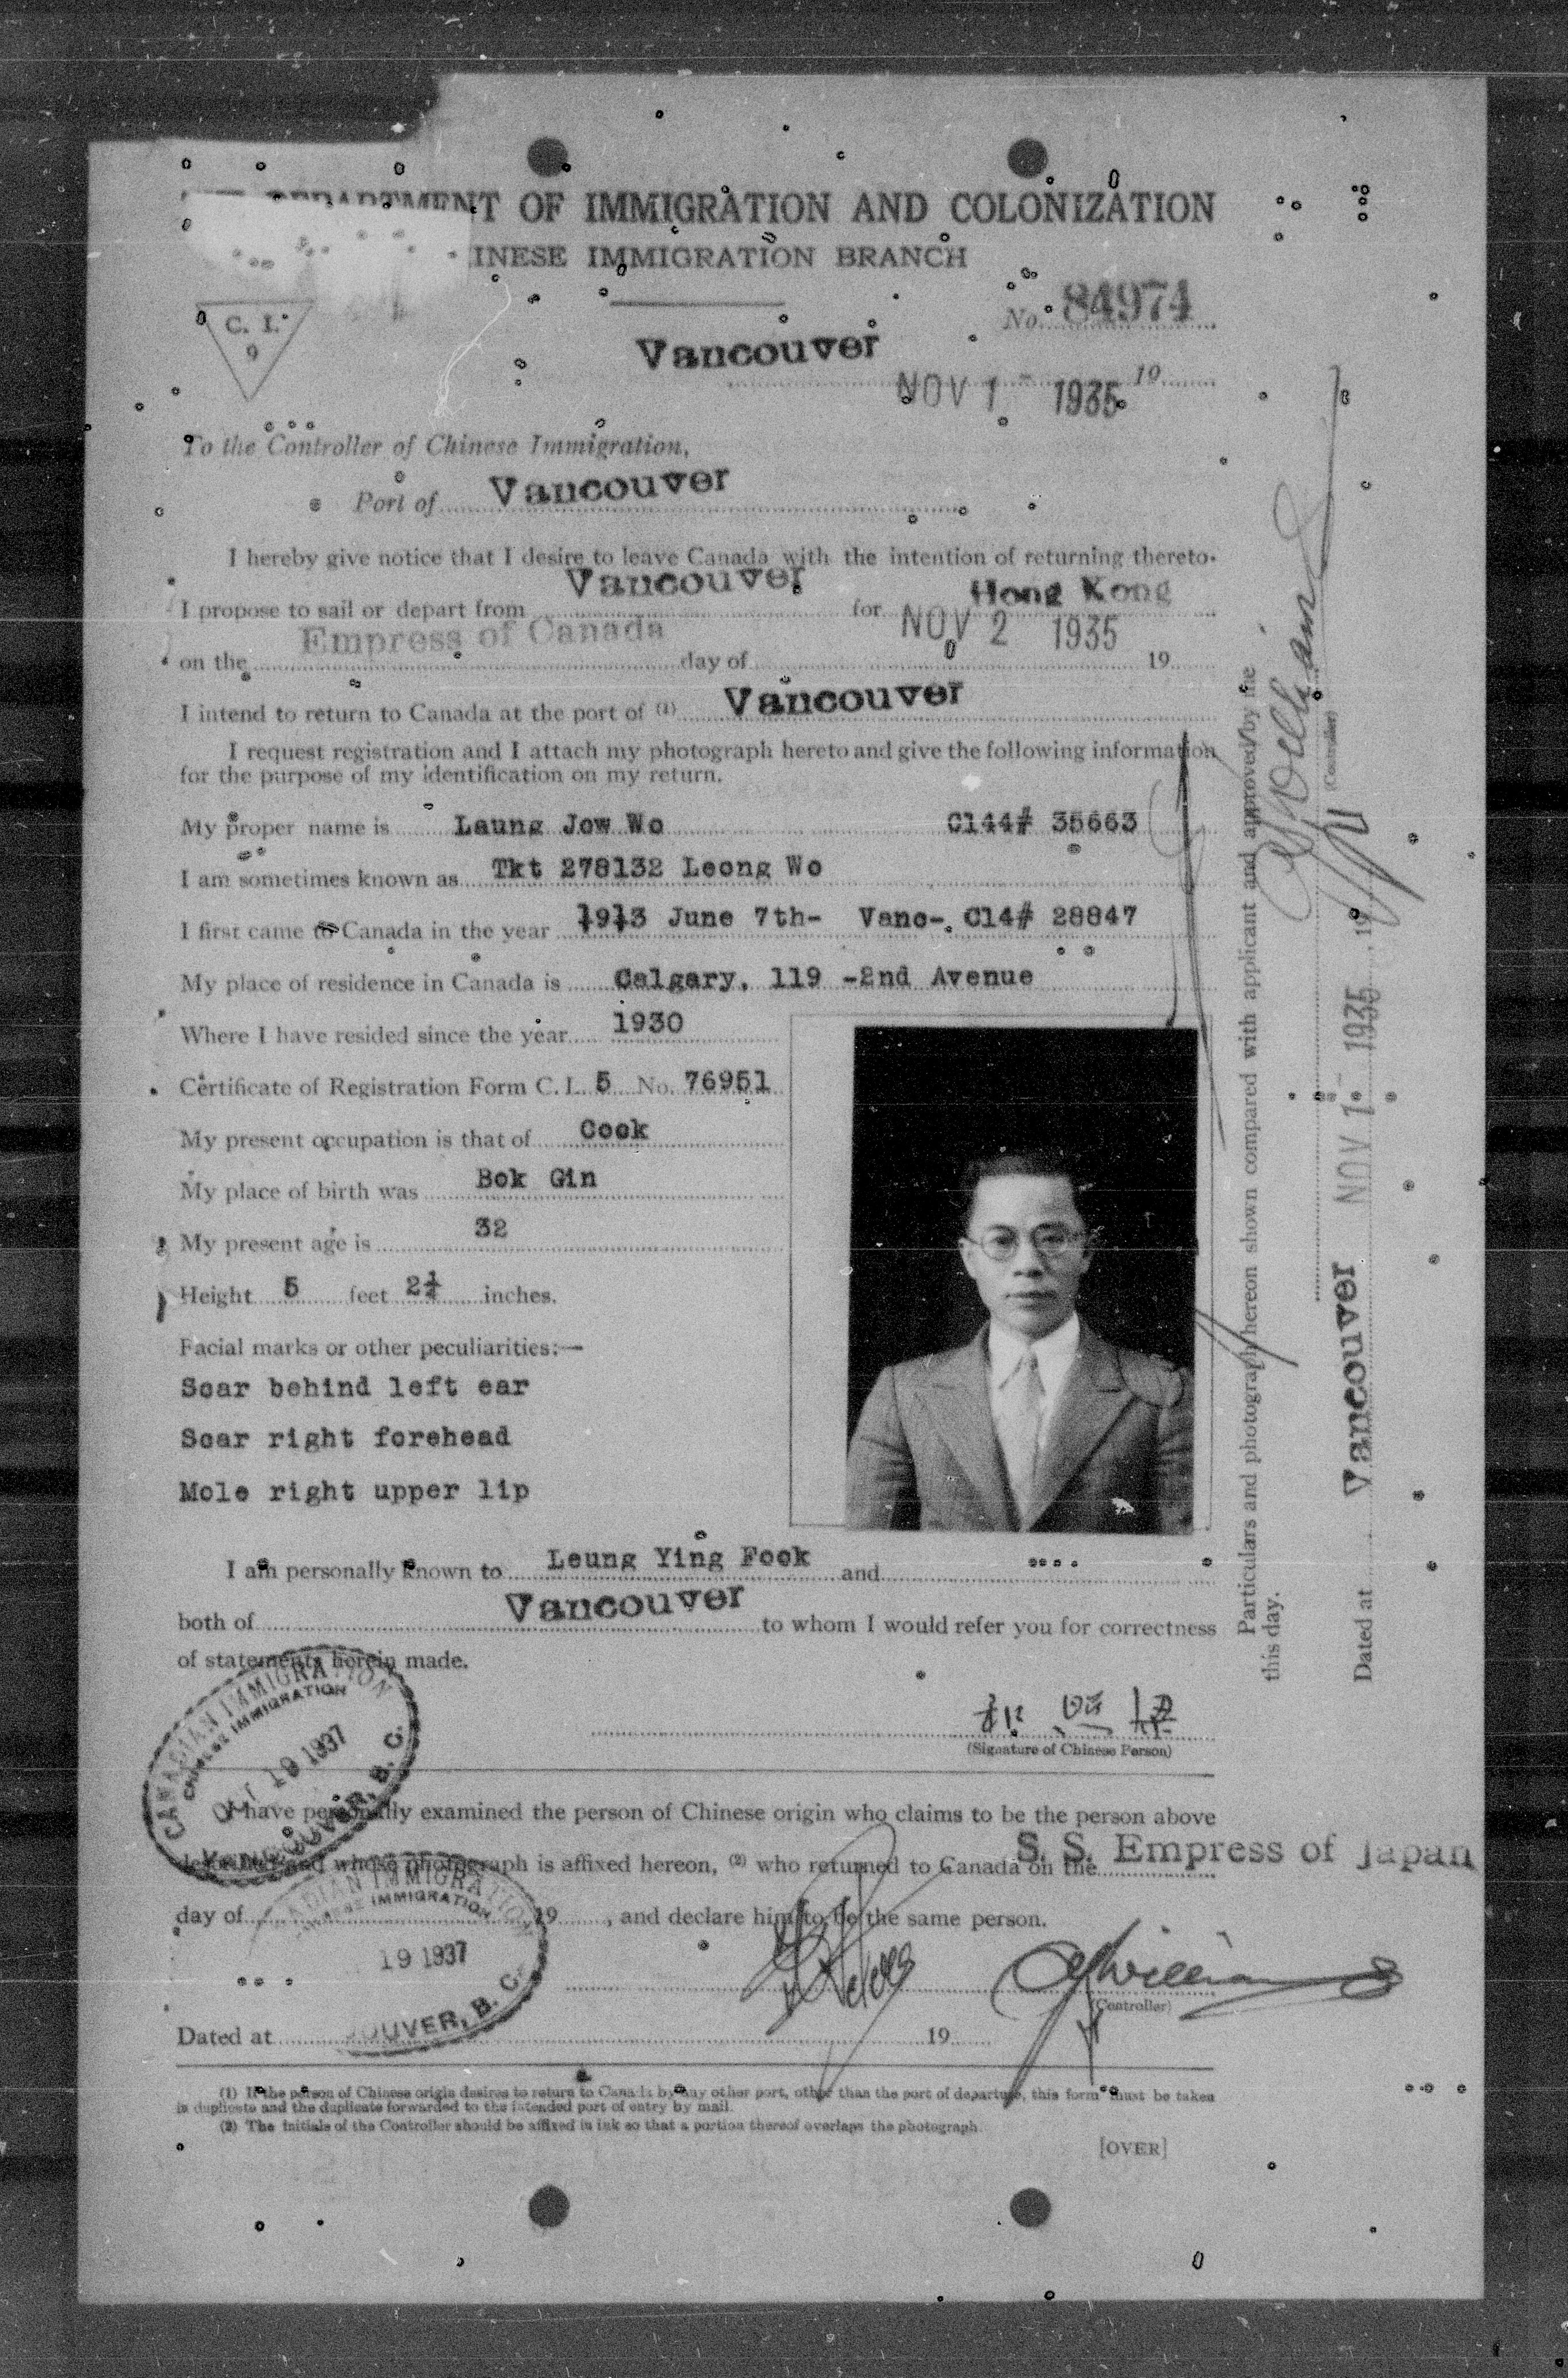 DEPARTMENT OF IMMIGRATION AND COLONIZATION
INESE IMMIGRATION BRANCH
C. I.
9
No. 84974
Vancouver
NOV 1 - 1935 19
To the Controller of Chinese Immigration,
Port of Vancouver
I hereby give notice that I desire to leave Canada with the intention of returning thereto.
I propose to sail or depart from Vancouver for Hong Kong
on the Empress of Canada day of NOV 2 1935 19
I intend to return to Canada at the port of (1) Vancouver
I request registration and I attach my photograph hereto and give the following information
for the purpose of my identification on my return.
My proper name is Laung Jow Wo C144# 35663
I am sometimes known as Tkt 278132 Leong Wo
I first came to Canada in the year 1913 June 7th- Vanc-. C14# 28847
My place of residence in Canada is Calgary, 119 -2nd Avenue
Where I have resided since the year 1930
Certificate of Registration Form C. I. 5 No. 76951
My present occupation is that of Cook
My place of birth was Bok Gin
My present age is 32
Height 5 feet 2¼ inches.
Facial marks or other peculiarities:—
Scar behind left ear
Scar right forehead
Mole right upper lip
I am personally known to Leung Ying Fook and
both of Vancouver to whom I would refer you for correctness
of statements herein made.
(Signature of Chinese Person)
I have personally examined the person of Chinese origin who claims to be the person above
and whose photograph is affixed hereon, (2) who returned to Canada on the S. S. Empress of Japan
day of 19 , and declare him to be the same person.
(Controller)
Dated at 19
(1) If the person of Chinese origin desires to return to Canada by any other port, other than the port of departure, this form must be taken
in duplicate and the duplicate forwarded to the intended port of entry by mail.
(2) The initials of the Controller should be affixed in ink so that a portion thereof overlaps the photograph.
[OVER]
CANADIAN IMMIGRATION
CHINESE IMMIGRATION
OCT 19 1937
VANCOUVER, B. C.
IMMIGRATION
IMMIGRATION
19 1937
OUVER, B. C.
Particulars and photograph hereon shown compared with applicant and approved by me
this day.
(Controller)
Dated at Vancouver NOV 1 - 1935 , 19